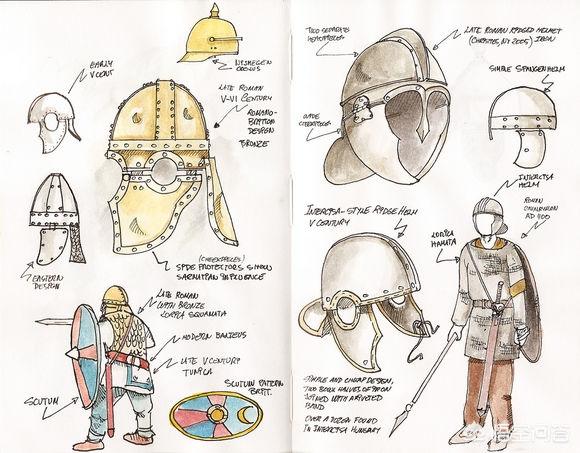 EARLY
V CENT
NIJMEGEN
LATE ROMAN
V-VI CENTURY
ROMANO-
BRITTON
DESIGN
BRONZE
EASTERN
DESIGN
(CHEEKPIECES)
SIDE PROTECTORS SHOW
SARMATIAN INFLUENCE
LATE ROMAN
WITH BRONZE
LORICA SQUAMATA
MODERN
LATE V CENTURY
TUNICA
SCUTUM
SCUTUM PATTERN
BRITT.
TWO SEPARATE
LATE ROMAN RIDGED HELMET
(CHRISTIES, NY 2005) IRON
SIMPLE SPANGENHELM
WIDE
CHEEKPIECES
INTERCISA
HELM
INTERCISA-STYLE RIDGE HELM
V CENTURY
LORICA
HAMATA
ROMAN
AD 400
SIMPLE AND CHEAP DESIGN,
TWO BOWL HALVES OF IRON
JOINED WITH A RIVETED
BAND
OVER A DOZEN FOUND
IN INTERCISA HUNGARY
悟空问答